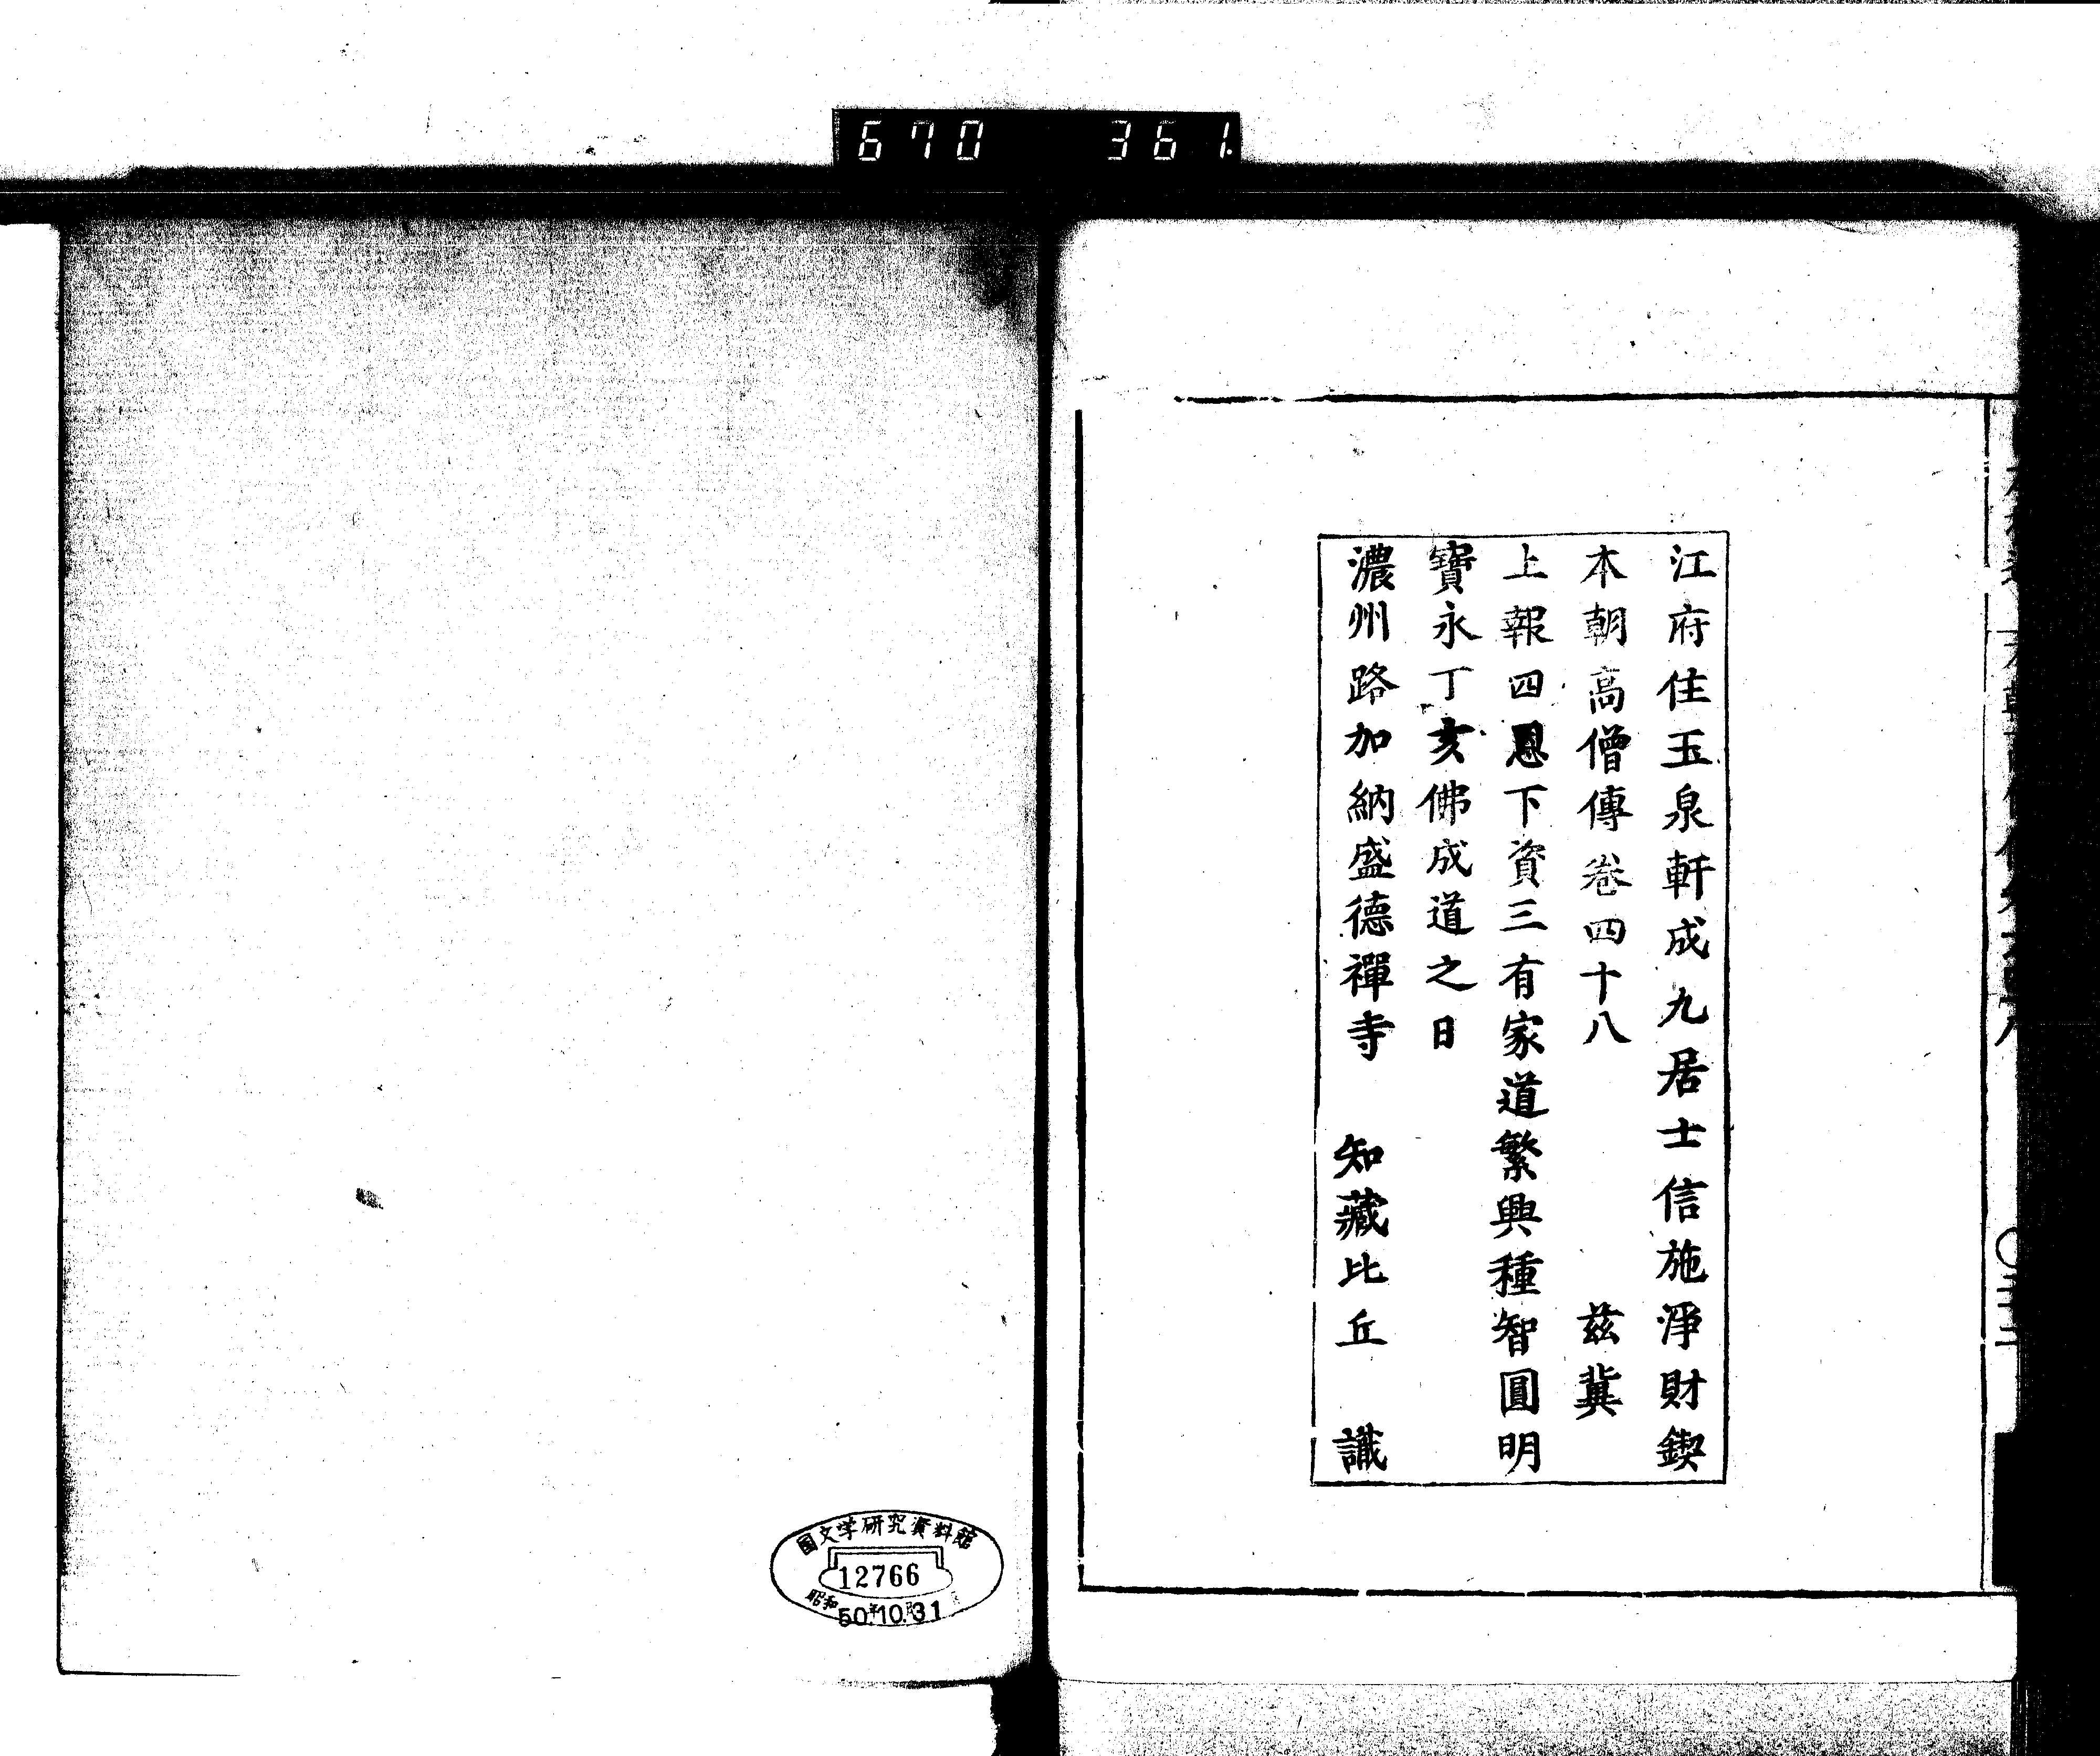 670 361.
江府住玉泉軒成九居士信施淨財鍥
本朝高僧傳卷四十八 茲冀
上報四恩下資三有家道繁興種智圓明
寶永丁亥佛成道之日
濃州路加納盛德禪寺 知藏比丘 識
国文学研究資料館
12766
昭和
50.10.31